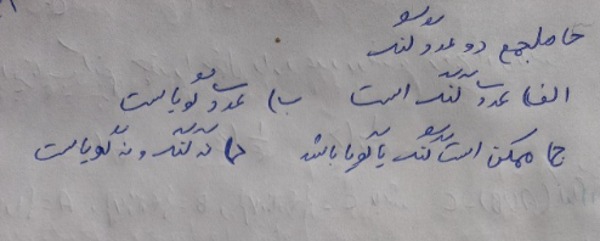 حاصلجمع دو عدد گنگ
الف) عددی گنگ است ب) عددی گویاست
ج) ممکن است گنگ یا گویا باشد د) نه گنگ و نه گویاست